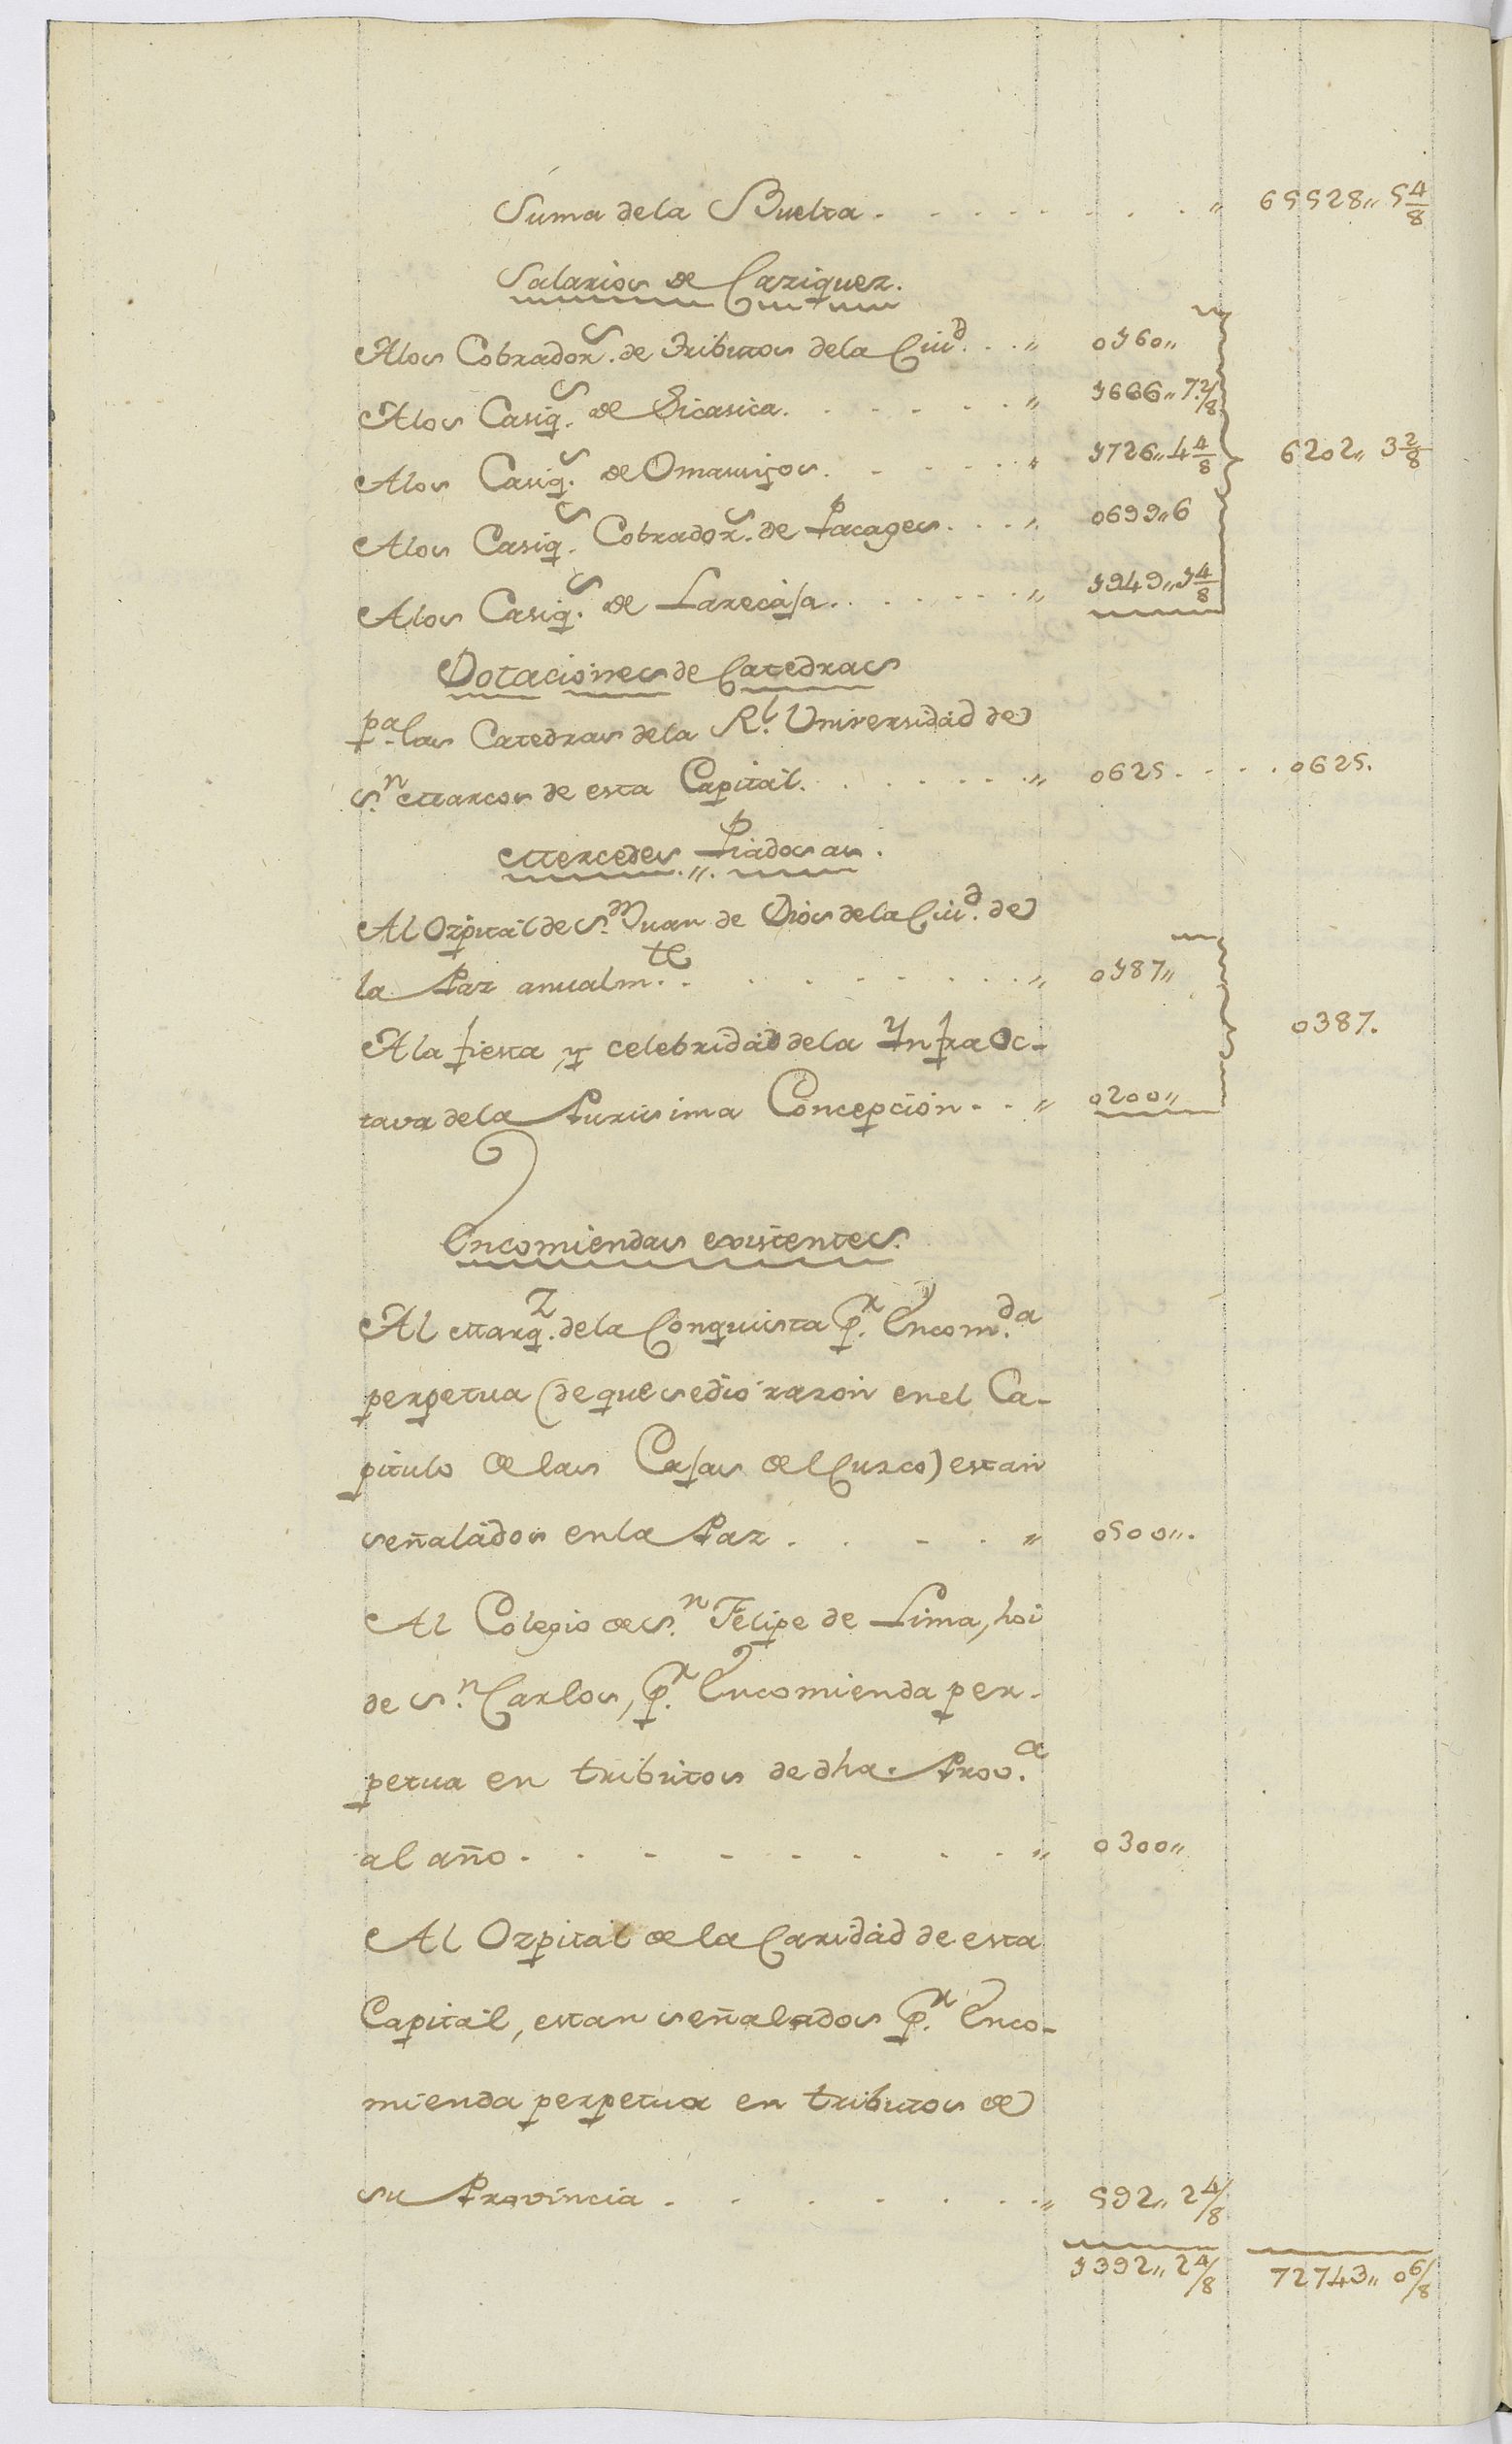 Suma dela Buelta . . . . . . . . . " 65528,, 5 4/8
Salarios de Caziquez.
Alos Cobrador.s de Tributos dela Ciu.d . . " 0160,,
Alos Casiq.s de Sicasica. . . . . . " 1666,, 7 2/8
Alos Casiq.s de Omasuyos. . . . . . " 1726,, 4 4/8 6202,, 3 2/8
Alos Casiq.s Cobrador.s de Pacages . . . " 0699,, 6
Alos Casiq.s de Larecasa . . . . . . " 1949,, 1 4/8
Dotaciones de Catedras
p.a las Catedras dela R.l Universidad de
S.n Marcos de esta Capital. . . . . . " 0625 . . . . 0625.
Mercedes Piadosas.
Al Ozpital de S.n Juan de Dios dela Ciu.d de
la Paz anualm.te . . . . . . . " 0187,,
A la fiesta, y celebridad dela Ynfra Oc- 0387.
tava dela Purisima Concepcion . . " 0200,,
Encomiendas existentes.
Al Marq.z dela Conquista p.r Encom.da
perpetua (de que se dio razon enel Ca-
pitulo de las Casas del Cuzco) estan
señalados enla Paz . . . . " 0500,,.
Al Colegio de S.n Felipe de Lima, hoi
de S.n Carlos, p.r Encomienda per-
petua en tributos de dha. Prov.a
al año . . . . . . . . " 0300,,
Al Ozpital de la Caridad de esta
Capital, estan señalados p.r Enco-
mienda perpetua en tributos de
su Provincia . . . . . . . " 592,, 2 4/8
1392,, 2 4/8 72743,, 0 6/8